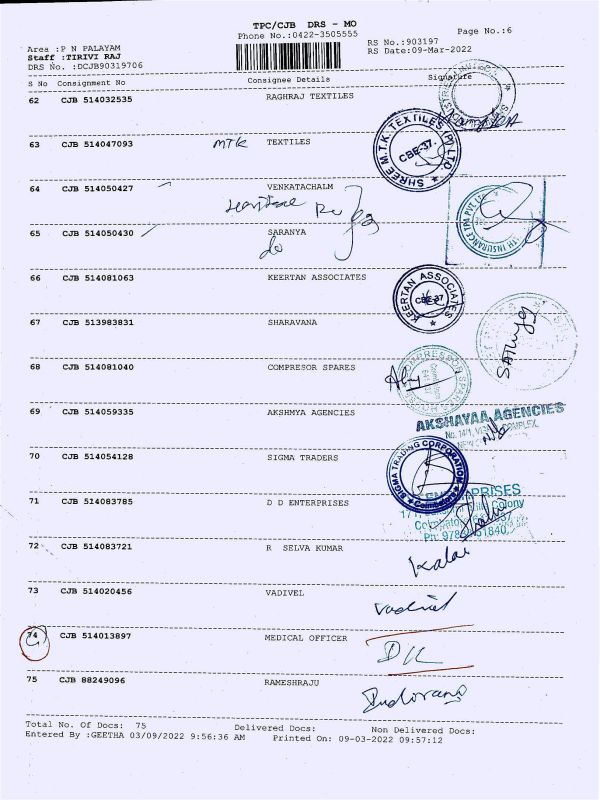 TPC/CJB DRS - MO
Phone No.:0422-3505555
Page No.:6
Area :P N PALAYAM
RS No.:903197
Staff :TIRIVI RAJ
RS Date:09-Mar-2022
DRS No. :DCJB90319706
S No Consignment No Consignee Details Signature
62 CJB 514032535 RAGHRAJ TEXTILES
63 CJB 514047093 MTK TEXTILES
SHREE M.T.K TEXTILES (P) LTD.
CBE-37.
64 CJB 514050427 VENKATACHALM
65 CJB 514050430 SARANYA
TH INSURANCE TPA PVT. LT
66 CJB 514081063 KEERTAN ASSOCIATES
KEERTAN ASSOCIATES
CBE-37
67 CJB 513983831 SHARAVANA
68 CJB 514081040 COMPRESOR SPARES
69 CJB 514059335 AKSHMYA AGENCIES
AKSHAYAA AGENCIES
70 CJB 514054128 SIGMA TRADERS
SIGMA TRADING CORPORATION
Coimbatore
71 CJB 514083785 D D ENTERPRISES
72 CJB 514083721 R SELVA KUMAR
Kalai
73 CJB 514020456 VADIVEL
Vadivel
74 CJB 514013897 MEDICAL OFFICER
75 CJB 88249096 RAMESHRAJU
Total No. Of Docs: 75 Delivered Docs: Non Delivered Docs:
Entered By :GEETHA 03/09/2022 9:56:36 AM Printed On: 09-03-2022 09:57:12